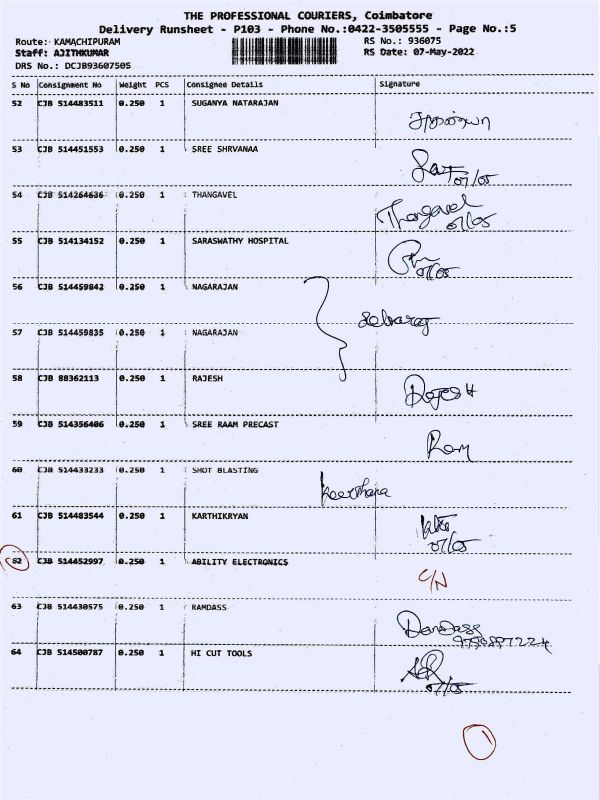 THE PROFESSIONAL COURIERS, Coimbatore
Delivery Runsheet - P103 - Phone No.:0422-3505555 - Page No.:5
Route: KAMACHIPURAM RS No.: 936075
Staff: AJITHKUMAR RS Date: 07-May-2022
DRS No.: DCJB93607505
S No Consignment No Weight PCS Consignee Details Signature
52 CJB 514483511 0.250 1 SUGANYA NATARAJAN
53 CJB 514451553 0.250 1 SREE SHRVANAA
07/05
54 CJB 514264636 0.250 1 THANGAVEL
Thangavel
07/05
55 CJB 514134152 0.250 1 SARASWATHY HOSPITAL
07/05
56 CJB 514459842 0.250 1 NAGARAJAN
Selvaraj
57 CJB 514459835 0.250 1 NAGARAJAN
58 CJB 88362113 0.250 1 RAJESH
59 CJB 514356406 0.250 1 SREE RAAM PRECAST
Ram
60 CJB 514433233 0.250 1 SHOT BLASTING
Keerthana
61 CJB 514483544 0.250 1 KARTHIKRYAN
07/05
62 CJB 514452997 0.250 1 ABILITY ELECTRONICS
C/N
63 CJB 514430575 0.250 1 RAMDASS
64 CJB 514500787 0.250 1 HI CUT TOOLS
07/05
1